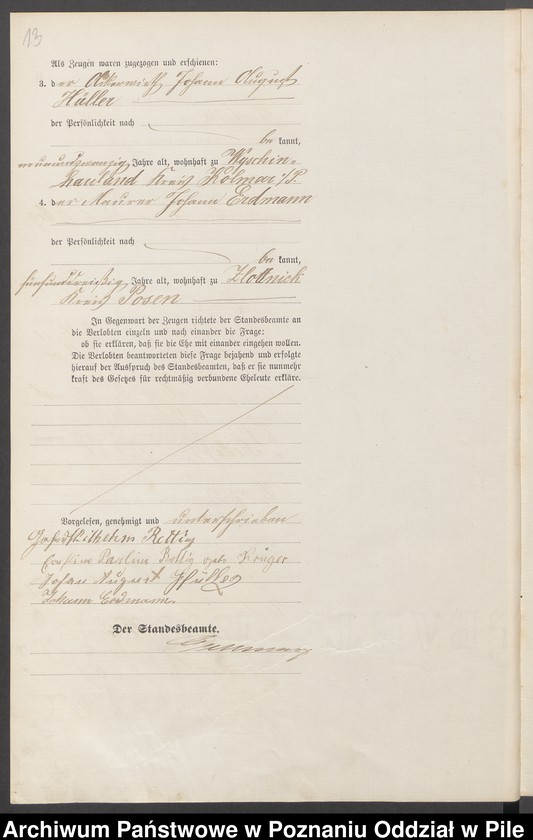 13
Als Zeugen waren zugezogen und erschienen:
3. der Ackerwirth Johann August
Hüller
der Persönlichkeit nach
be kannt,
neunundzwanzig Jahre alt, wohnhaft zu Wyschin-
Hauland Kreis Kolmar i/P.
4. der Maurer Johann Erdmann
der Persönlichkeit nach
be kannt,
fünfunddreißig Jahre alt, wohnhaft zu Zlottnick
Kreis Posen
In Gegenwart der Zeugen richtete der Standesbeamte an
die Verlobten einzeln und nach einander die Frage:
ob sie erklären, daß sie die Ehe mit einander eingehen wollen.
Die Verlobten beantworteten diese Frage bejahend und erfolgte
hierauf der Ausspruch des Standesbeamten, daß er sie nunmehr
kraft des Gesetzes für rechtmäßig verbundene Eheleute erkläre.
Vorgelesen, genehmigt und unterschrieben
Wilhelm Rettig
Pauline Rettig geb. Krüger
Johan August Hüller
Johann Erdmann
Der Standesbeamte.
Archiwum Państwowe w Poznaniu Oddział w Pile